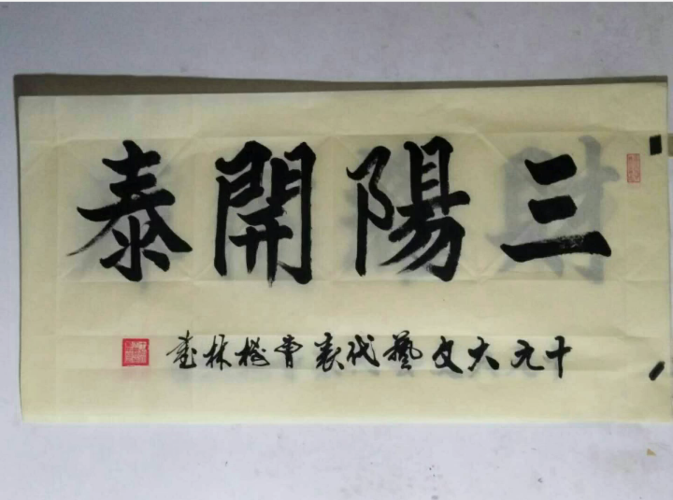 三陽開泰
十九大文藝代表曹
林書